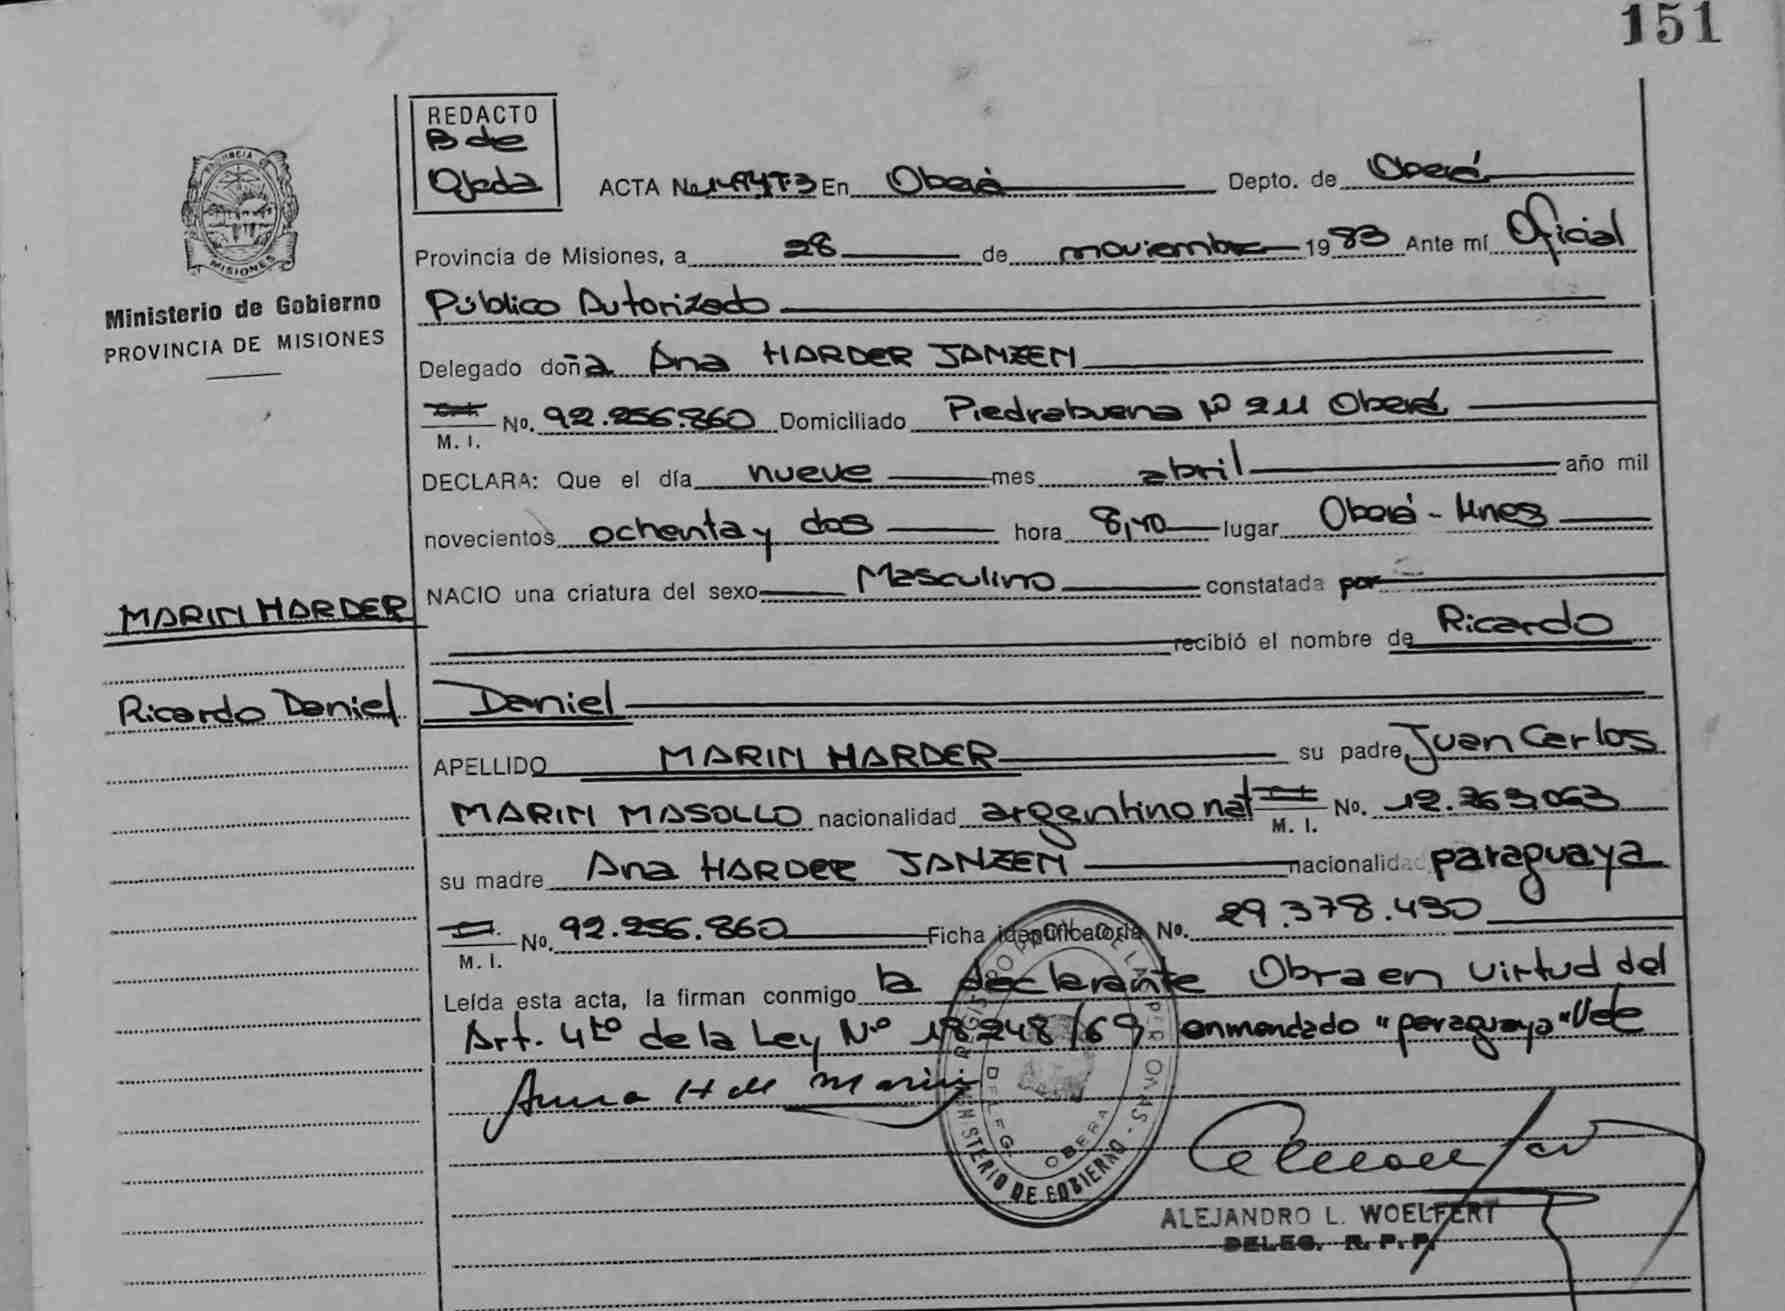 151
REDACTO
B de
Ojeda
ACTA No 1.494 T3 En Oberá Depto. de Oberá
PROVINCIA DE
MISIONES
Provincia de Misiones, a 28 de noviembre 1983 Ante mí Oficial
Ministerio de Gobierno
PROVINCIA DE MISIONES
Público Autorizado
Delegado doña Ana HARDER JANZEN
M. I. No. 92.256.860 Domiciliado Piedrabuena Nº 211 Oberá
DECLARA: Que el día nueve mes abril año mil
novecientos ochenta y dos hora 8,40 lugar Oberá - Mnes
NACIO una criatura del sexo Masculino constatada por
MARIN HARDER
recibió el nombre de Ricardo
Ricardo Daniel
Daniel
APELLIDO MARIN HARDER su padre Juan Carlos
MARIN MASOLLO nacionalidad argentino nat M. I. No. 12.263.063
su madre Ana HARDER JANZEN nacionalidad paraguaya
M. I. No. 92.256.860 Ficha identificatoria No. 29.378.430
Leída esta acta, la firman conmigo la declarante Obra en virtud del
Art. 4to de la Ley Nº 18.248/69 enmendado "paraguaya" Vale
Anna H de Marin
REGISTRO DE LAS PERSONAS - MINISTERIO DE GOBIERNO
DELEG. OBERA
ALEJANDRO L. WOELFERT
DELEG. R. P. P.